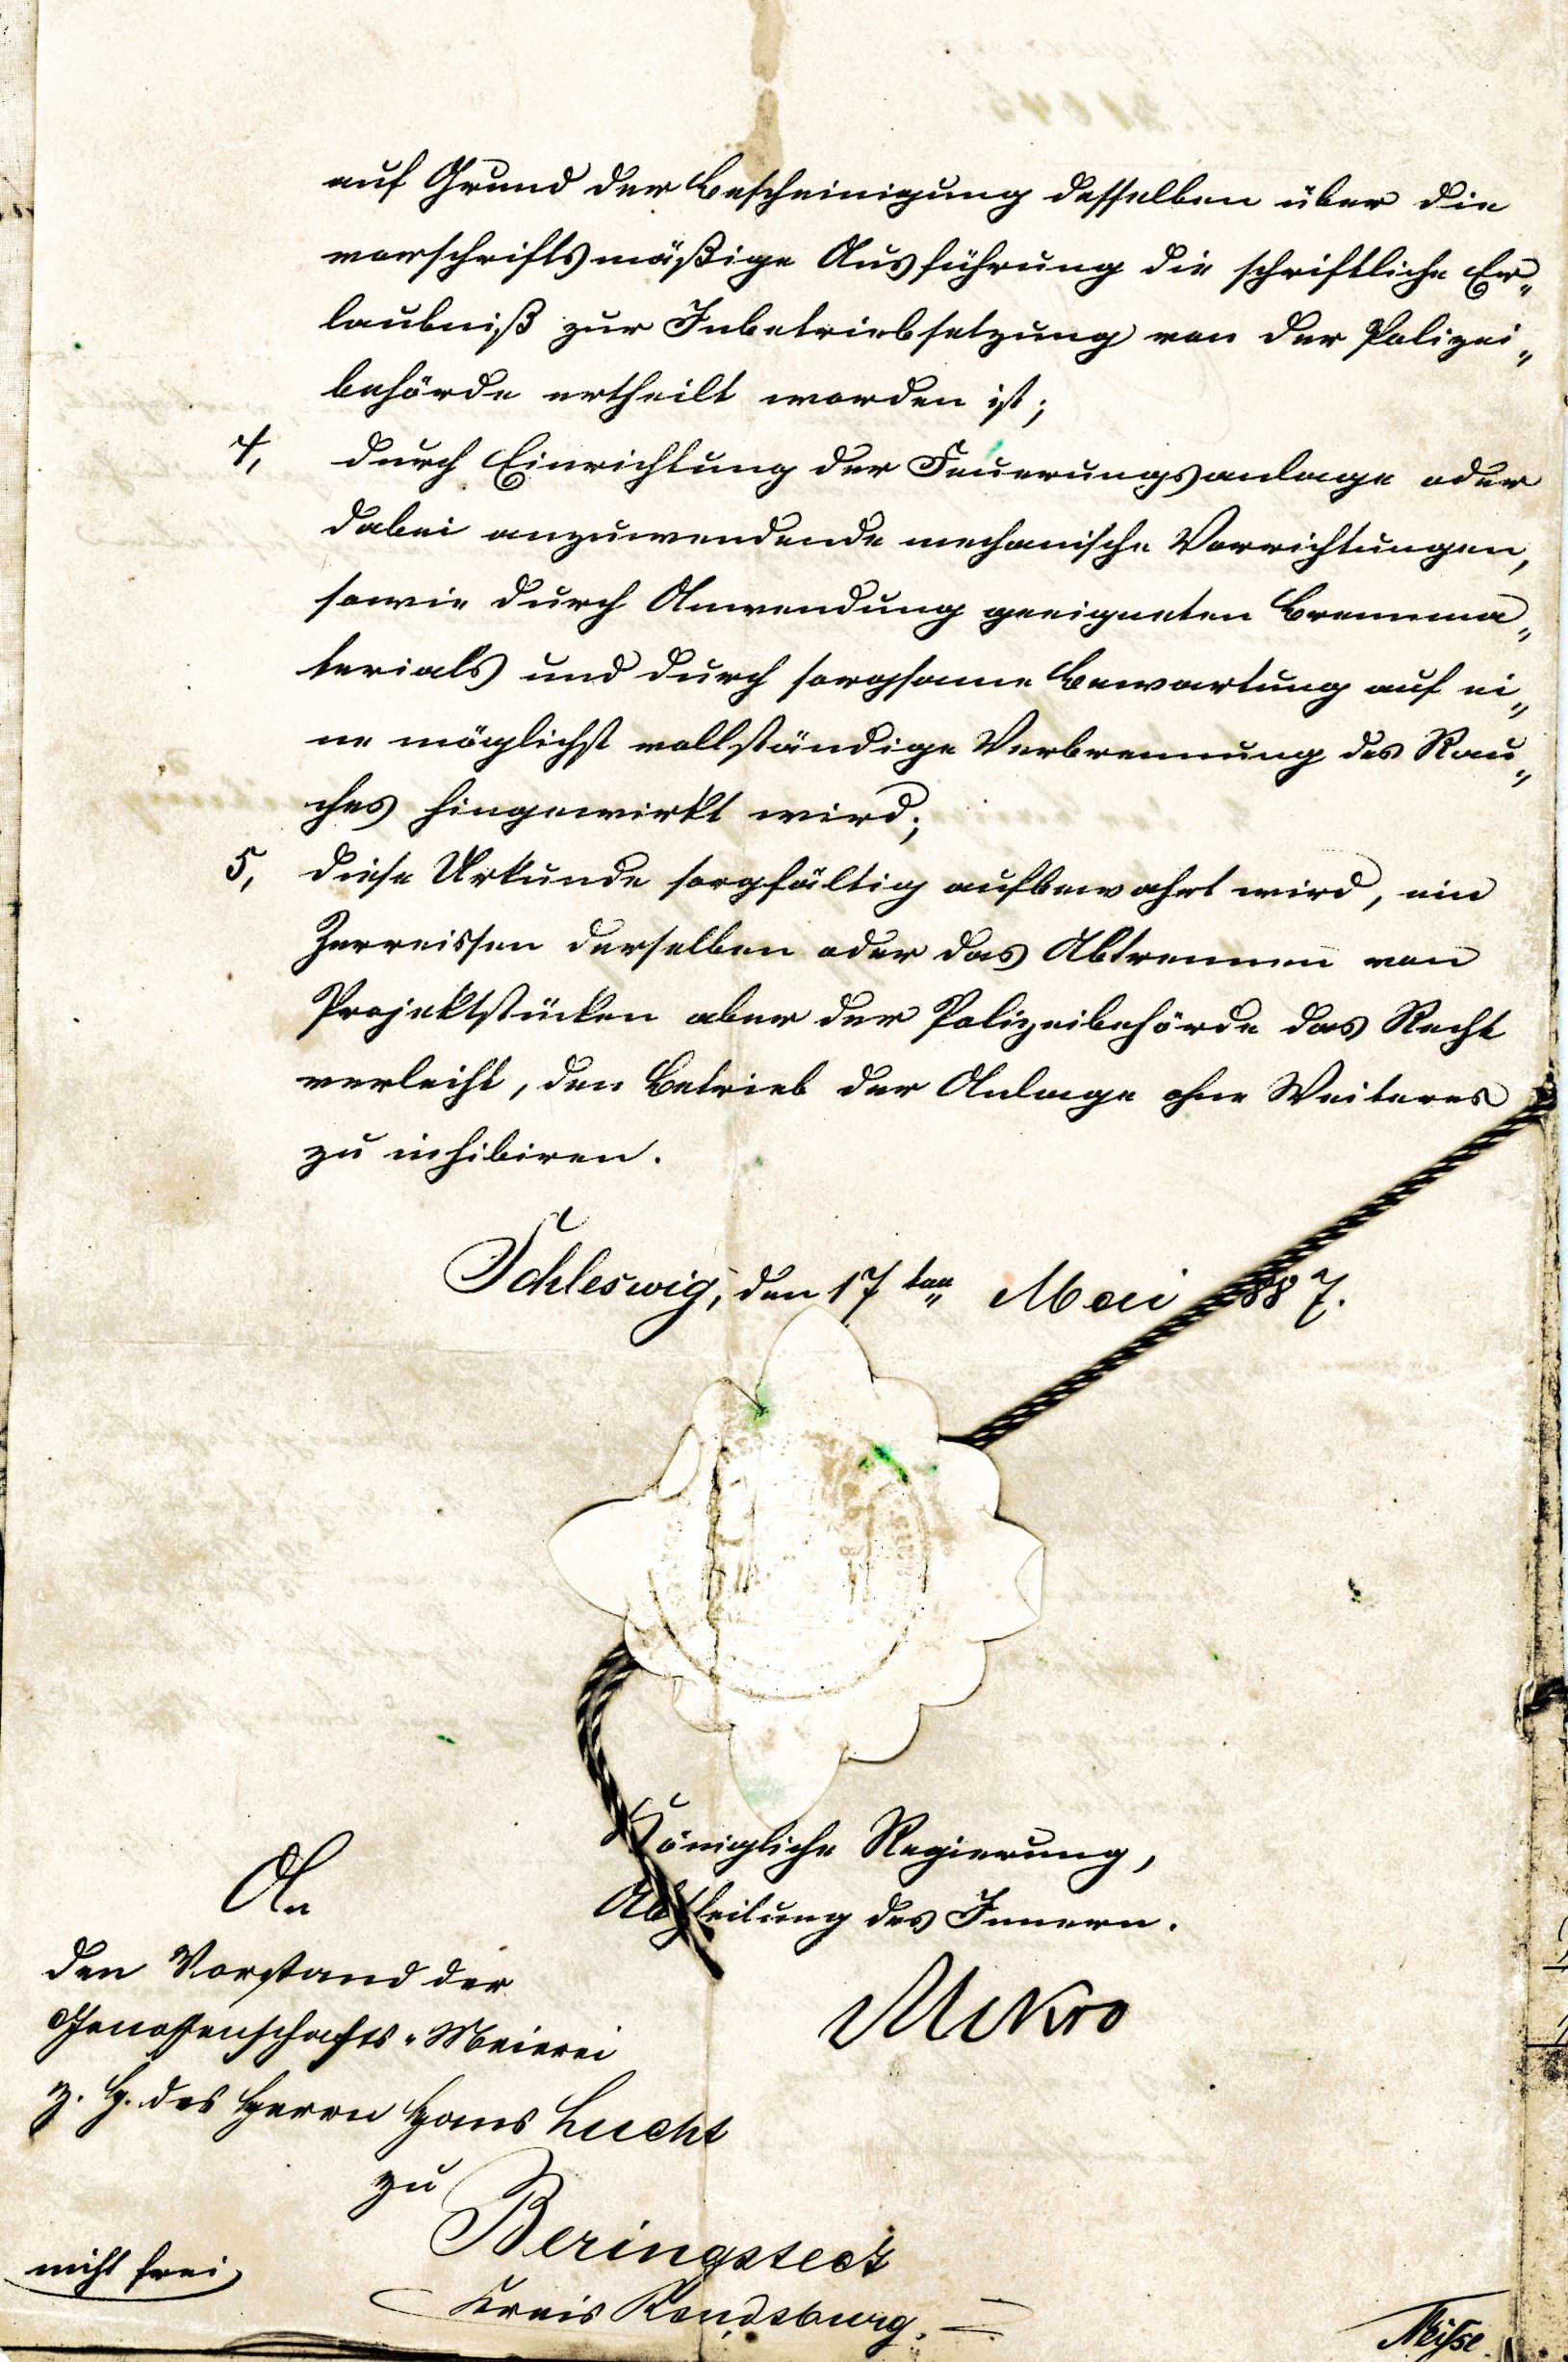 auf Grund der Bescheinigung desselben über die
vorschriftsmäßige Ausführung die schriftliche Er„
laubniß zur Inbetriebsetzung von der Polizei„
behörde ertheilt worden ist;
4, durch Einrichtung der Feuerungsanlage oder
dabei anzuwendende mechanische Vorrichtungen,
sowie durch Anwendung geeigneten Brennma„
terials und durch sorgsame Bewartung auf ei„
ne möglichst vollständige Verbrennung des Rau„
ches hingewirkt wird;
5, diese Urkunde sorgfältig aufbewahrt wird, ein
Zerreissen derselben oder das Abtrennen von
Projektstücken aber der Polizeibehörde das Recht
verleiht, den Betrieb der Anlage ohne Weiteres
zu inhibiren.
Schleswig, den 17ten Mai 1887.
Königliche Regierung,
Abtheilung des Innern.
An
den Vorstand der
Genossenschafts-Meierei
z. H. des Herrn Hans Lucht
zu
Beringstedt
Kreis Rendsburg.
nicht frei